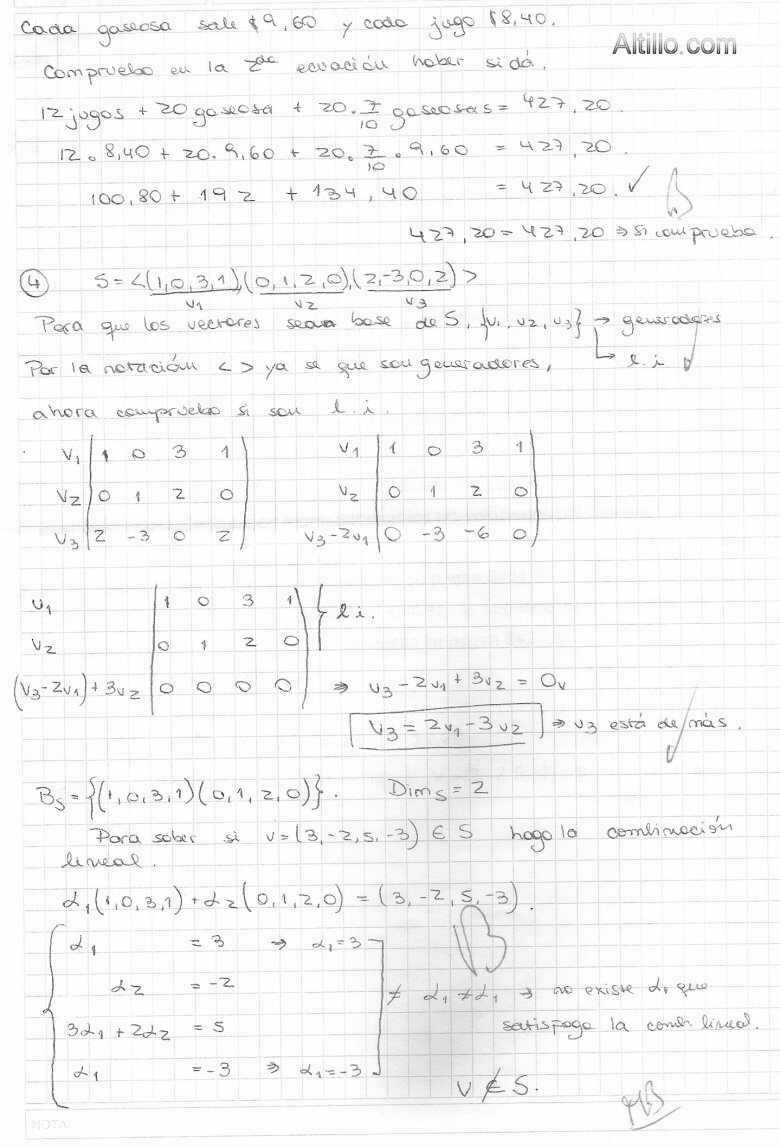 Cada gaseosa sale $9,60 y cada jugo $8,40.
Altillo.com
Compruebo en la 2da ecuación haber si dá.
12 jugos + 20 gaseosa + 20. 7/10 gaseosas = 427,20.
12. 8,40 + 20. 9,60 + 20. 7/10 . 9,60 = 427,20.
100,80 + 192 + 134,40 = 427,20. ✓ B
427,20 = 427,20 ⇒ si comprueba.
④ S = <(1,0,3,1),(0,1,2,0),(2,-3,0,2)>
v1 v2 v3
Para que los vectores sean base de S, {v1, v2, v3} → generadores
Por la notación < > ya se que son generadores, → l.i
ahora compruebo si son l.i.
v1 | 1 0 3 1 v1 | 1 0 3 1
v2 | 0 1 2 0 v2 | 0 1 2 0
v3 | 2 -3 0 2 v3-2v1 | 0 -3 -6 0
v1 | 1 0 3 1 } l.i.
v2 | 0 1 2 0
(v3-2v1)+3v2 | 0 0 0 0 ⇒ v3-2v1+3v2 = 0v
v3 = 2v1-3v2 ⇒ v3 está de más.
Bs = {(1,0,3,1)(0,1,2,0)}. Dims = 2
Para saber si v=(3,-2,5,-3) ∈ S hago la combinación
lineal.
α1(1,0,3,1)+α2(0,1,2,0) = (3,-2,5,-3).
α1 = 3 → α1=3 B
α2 = -2
≠ α1≠α1 → no existe α1 que
3α1+2α2 = 5 satisfaga la comb. lineal.
α1 = -3 ⇒ α1=-3
v ∉ S.
MB
NOTA